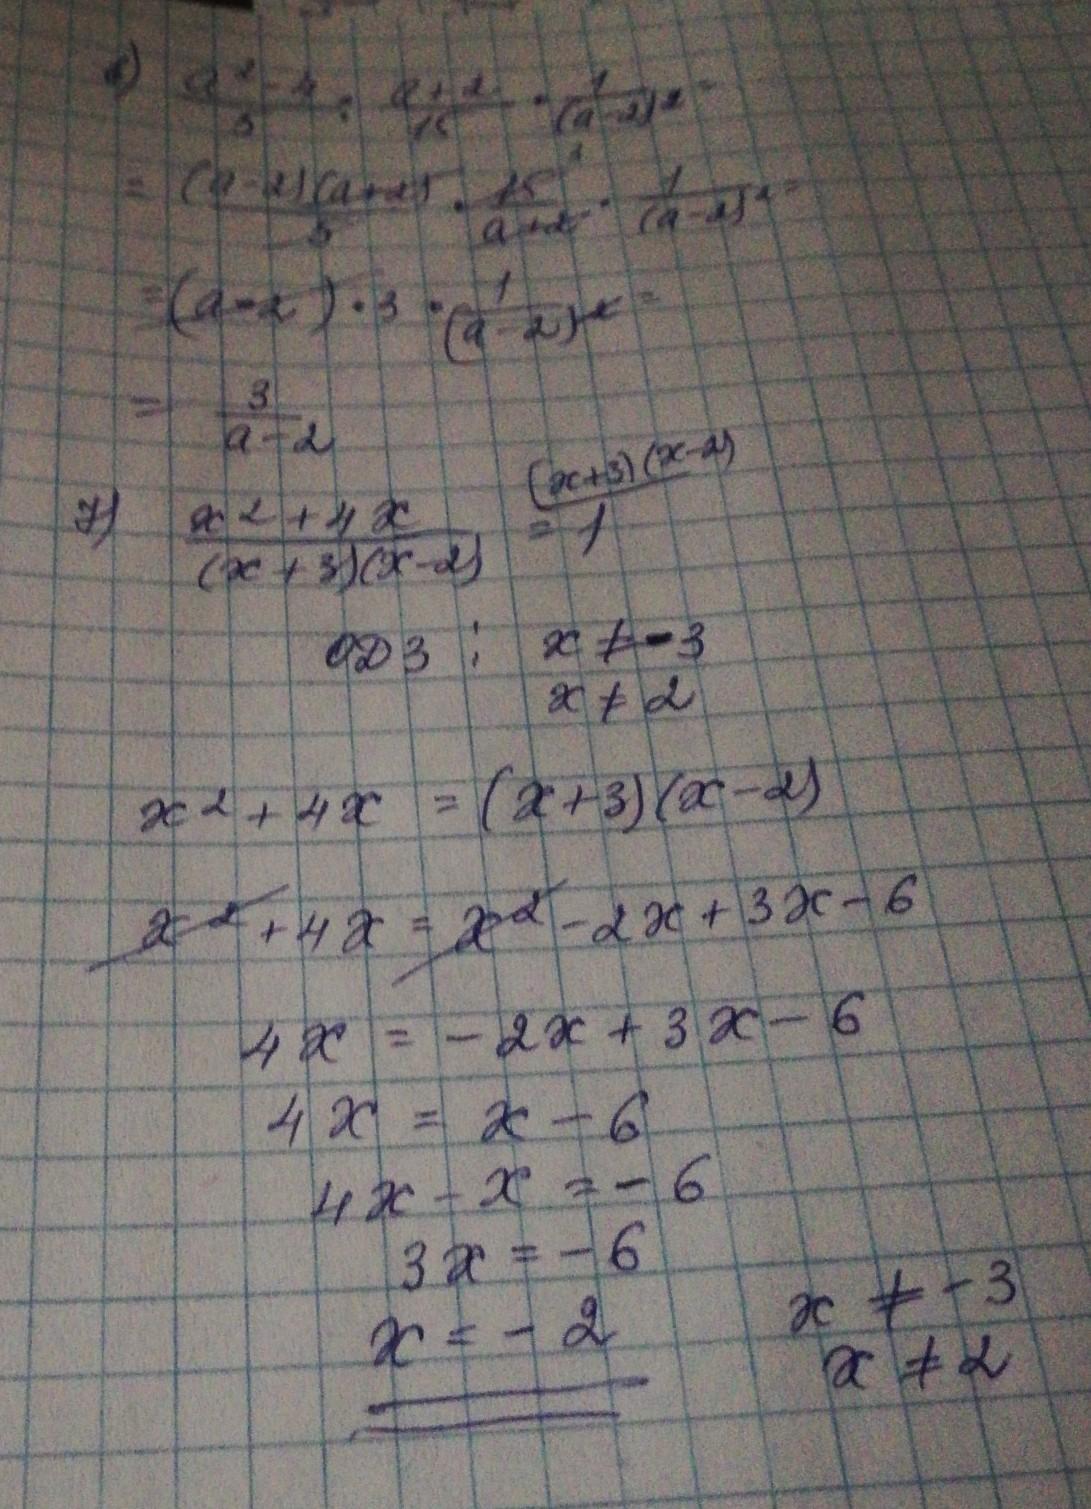 6) a² - 4 / 5 : a + 2 / 15 · 1 / (a - 2)² =
= (a - 2)(a + 2) / 5 · 15³ / a + 2 · 1 / (a - 2)² =
= (a - 2) · 3 · 1 / (a - 2)² =
= 3 / a - 2
7) x² + 4x / (x + 3)(x - 2) = 1 (x+3)(x-2)
ОДЗ : x ≠ -3
x ≠ 2
x² + 4x = (x + 3)(x - 2)
x² + 4x = x² - 2x + 3x - 6
4x = - 2x + 3x - 6
4x = x - 6
4x - x = - 6
3x = - 6
x = - 2
x ≠ - 3
x ≠ 2